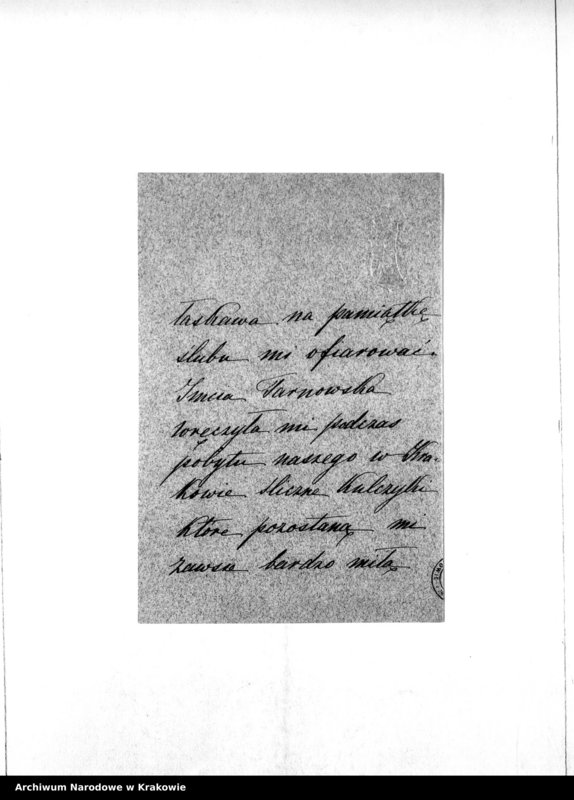 łaskawa na pamiątkę
ślubu mi ofiarować.
Imcia Tarnowska
wręczyła mi podczas
pobytu naszego w Kra-
kowie śliczne kulczyki
które pozostaną mi
zawsze bardzo miłą
Archiwum Narodowe w Krakowie